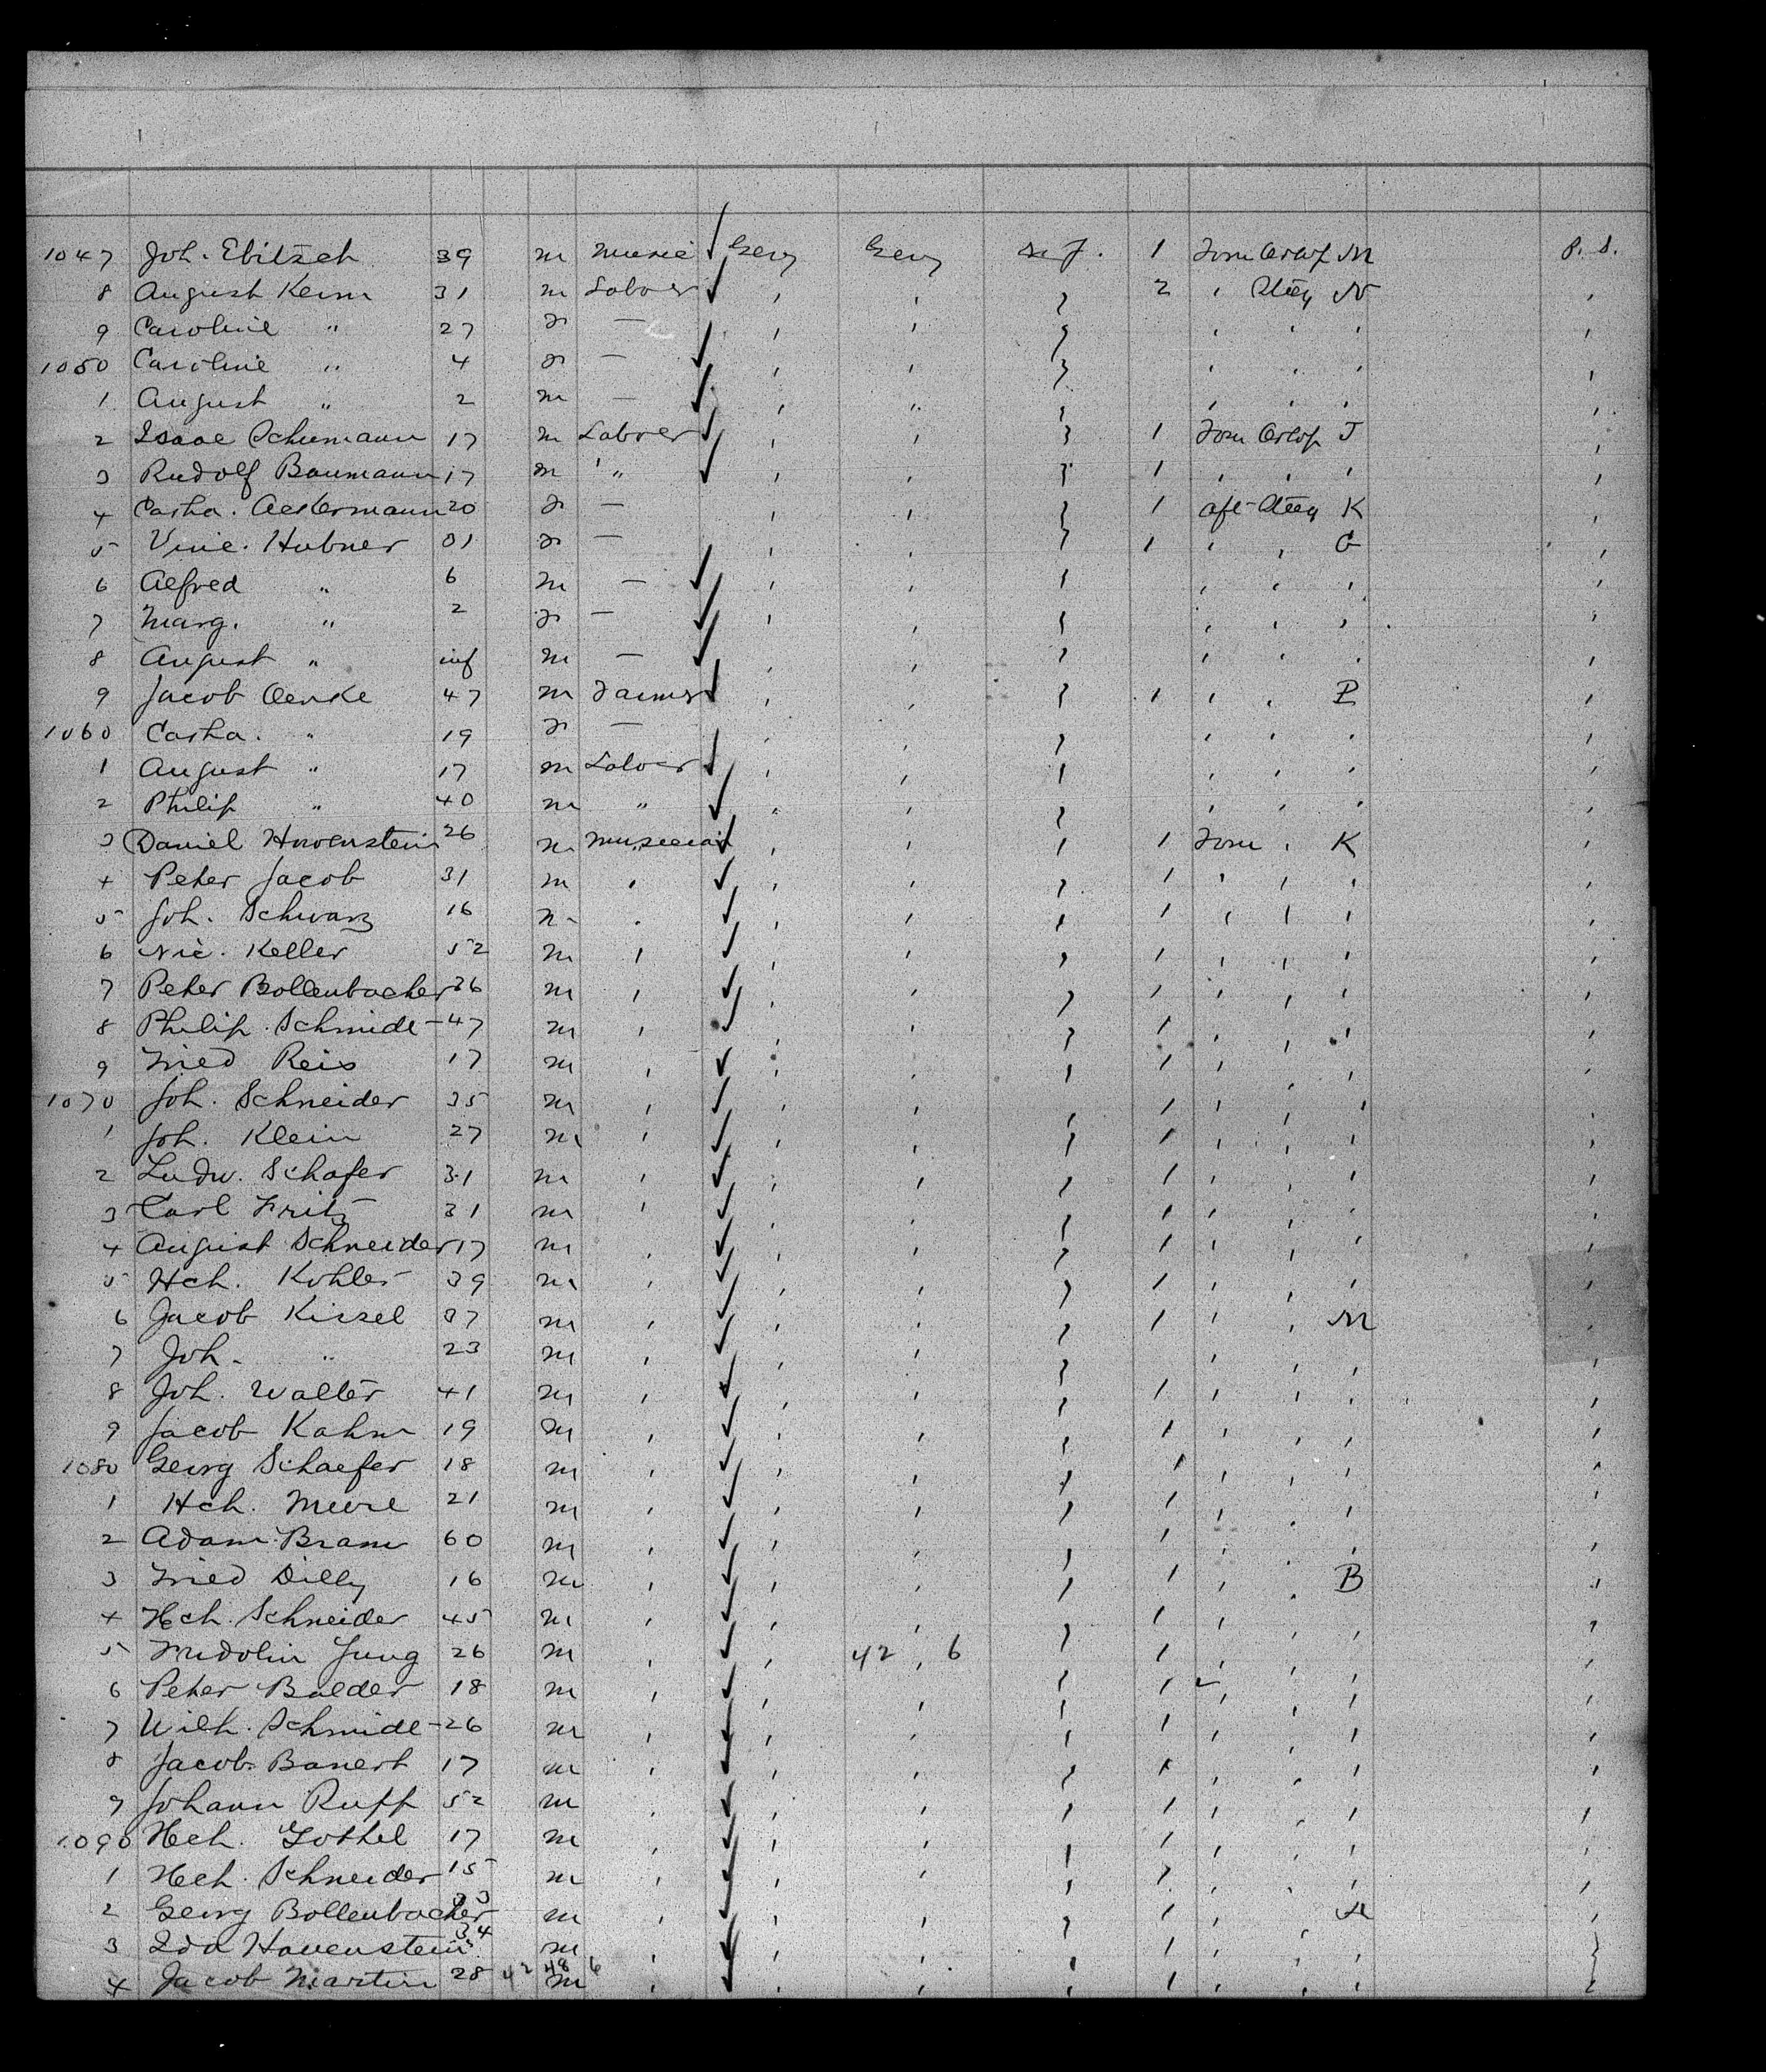 1047 Joh. Ebitsch 39 m Music Gery Gery N.J. 1 Form Orlop M P. S.
8 August Keim 31 m Labrer ' ' ' 2 ' Steeg N '
9 Caroline " 27 f — ' ' ' ' ' ' '
1050 Caroline " 4 f — ' ' ' ' ' ' '
1 August " 2 m — ' " ' ' ' ' '
2 Isaac Schumann 17 m Labrer ' ' ' 1 Form Orlop J '
3 Rudolf Baumann 17 m " ' ' ' 1 ' ' ' '
4 Catha. Ackermann 20 f — ' ' ' 1 aft Steeg K '
5 Vinc. Hubner 31 f — ' ' ' 1 ' ' G '
6 Alfred " 6 m — ' ' ' ' ' ' '
7 Marg. " 2 f — ' ' ' ' ' ' '
8 August " inf m — ' ' ' ' ' ' '
9 Jacob Oenke 47 m Farmer ' ' ' 1 ' ' P '
1060 Catha. " 19 f — ' ' ' ' ' ' '
1 August " 17 m Labrer ' ' ' ' ' ' '
2 Philip " 40 m " " ' ' ' ' ' '
3 Daniel Havenstein 26 m Musician ' ' ' 1 Form ' K '
4 Peter Jacob 31 m ' ' ' ' 1 ' ' ' '
5 Joh. Schwarz 16 m ' ' ' ' 1 ' ' ' '
6 Nic. Keller 52 m ' ' ' ' 1 ' ' ' '
7 Peter Bollenbacher 26 m ' ' ' ' 1 ' ' ' '
8 Philip Schmidt 47 m ' ' ' ' 1 ' ' ' '
9 Fried Reis 17 m ' ' ' ' 1 ' ' ' '
1070 Joh. Schneider 35 m ' ' ' ' 1 ' ' ' '
1 Joh. Klein 27 m ' ' ' ' 1 ' ' ' '
2 Ludw. Schafer 31 m ' ' ' ' 1 ' ' ' '
3 Carl Fritz 31 m ' ' ' ' 1 ' ' ' '
4 August Schneider 17 m ' ' ' ' 1 ' ' ' '
5 Hch. Kohler 39 m ' ' ' ' 1 ' ' ' '
6 Jacob Kissel 37 m ' ' ' ' 1 ' ' M '
7 Joh. " 23 m ' ' ' ' ' ' ' '
8 Joh. Walter 41 m ' ' ' ' 1 ' ' ' '
9 Jacob Kahm 19 m ' ' ' ' 1 ' ' ' '
1080 Georg Schaefer 18 m ' ' ' ' 1 ' ' ' '
1 Hch. 21 m ' ' ' ' 1 ' ' ' '
2 Adam Bram 60 m ' ' ' ' 1 ' ' ' '
3 Fried Dilly 16 m ' ' ' ' 1 ' ' B '
4 Hch. Schneider 45 m ' ' ' ' 1 ' ' ' '
5 Fridolin Jung 26 m ' ' 42 ' 6 ' 1 ' ' ' '
6 Peter Balder 18 m ' ' ' ' 1 ' ' ' '
7 Wilh. Schmidt 26 m ' ' ' ' 1 ' ' ' '
8 Jacob Banert 17 m ' ' ' ' 1 ' ' ' '
9 Johann Ruff 52 m ' ' ' ' 1 ' ' ' '
1090 Hch. Gothel 17 m ' ' ' ' 1 ' ' ' '
1 Hch. Schneider 15 m ' ' ' ' 1 ' ' ' '
2 Georg Bollenbacher 33 m ' ' ' ' 1 ' ' A '
3 Havenstein 34 m ' ' ' ' 1 ' ' ' '
4 Jacob Martin 28 42 48 6 m ' ' ' ' 1 ' ' ' '